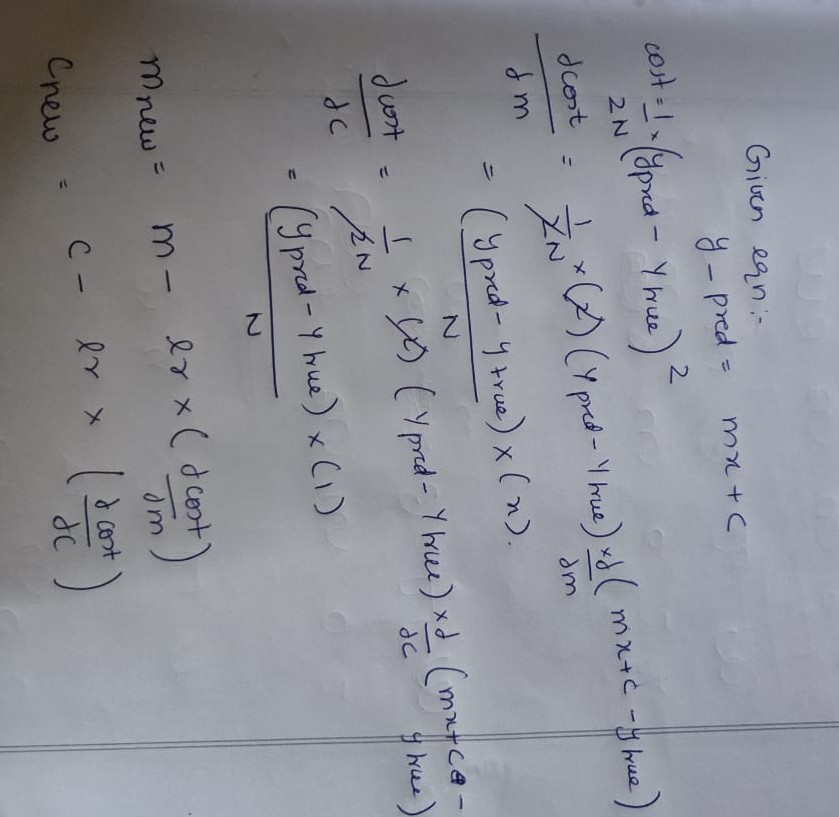 Given eqn:-
y-pred = mx + c
cost = 1/2N × (ypred - ytrue)²
dcost/dm = 1/2N × (2) (ypred - ytrue) × d/dm (mx+c - ytrue)
= (ypred - ytrue)/N × (x).
dcost/dc = 1/2N × (2) (ypred - ytrue) × d/dc (mx+c - ytrue)
= (ypred - ytrue)/N × (1)
mnew = m - lr × (dcost/dm)
cnew = c - lr × (dcost/dc)